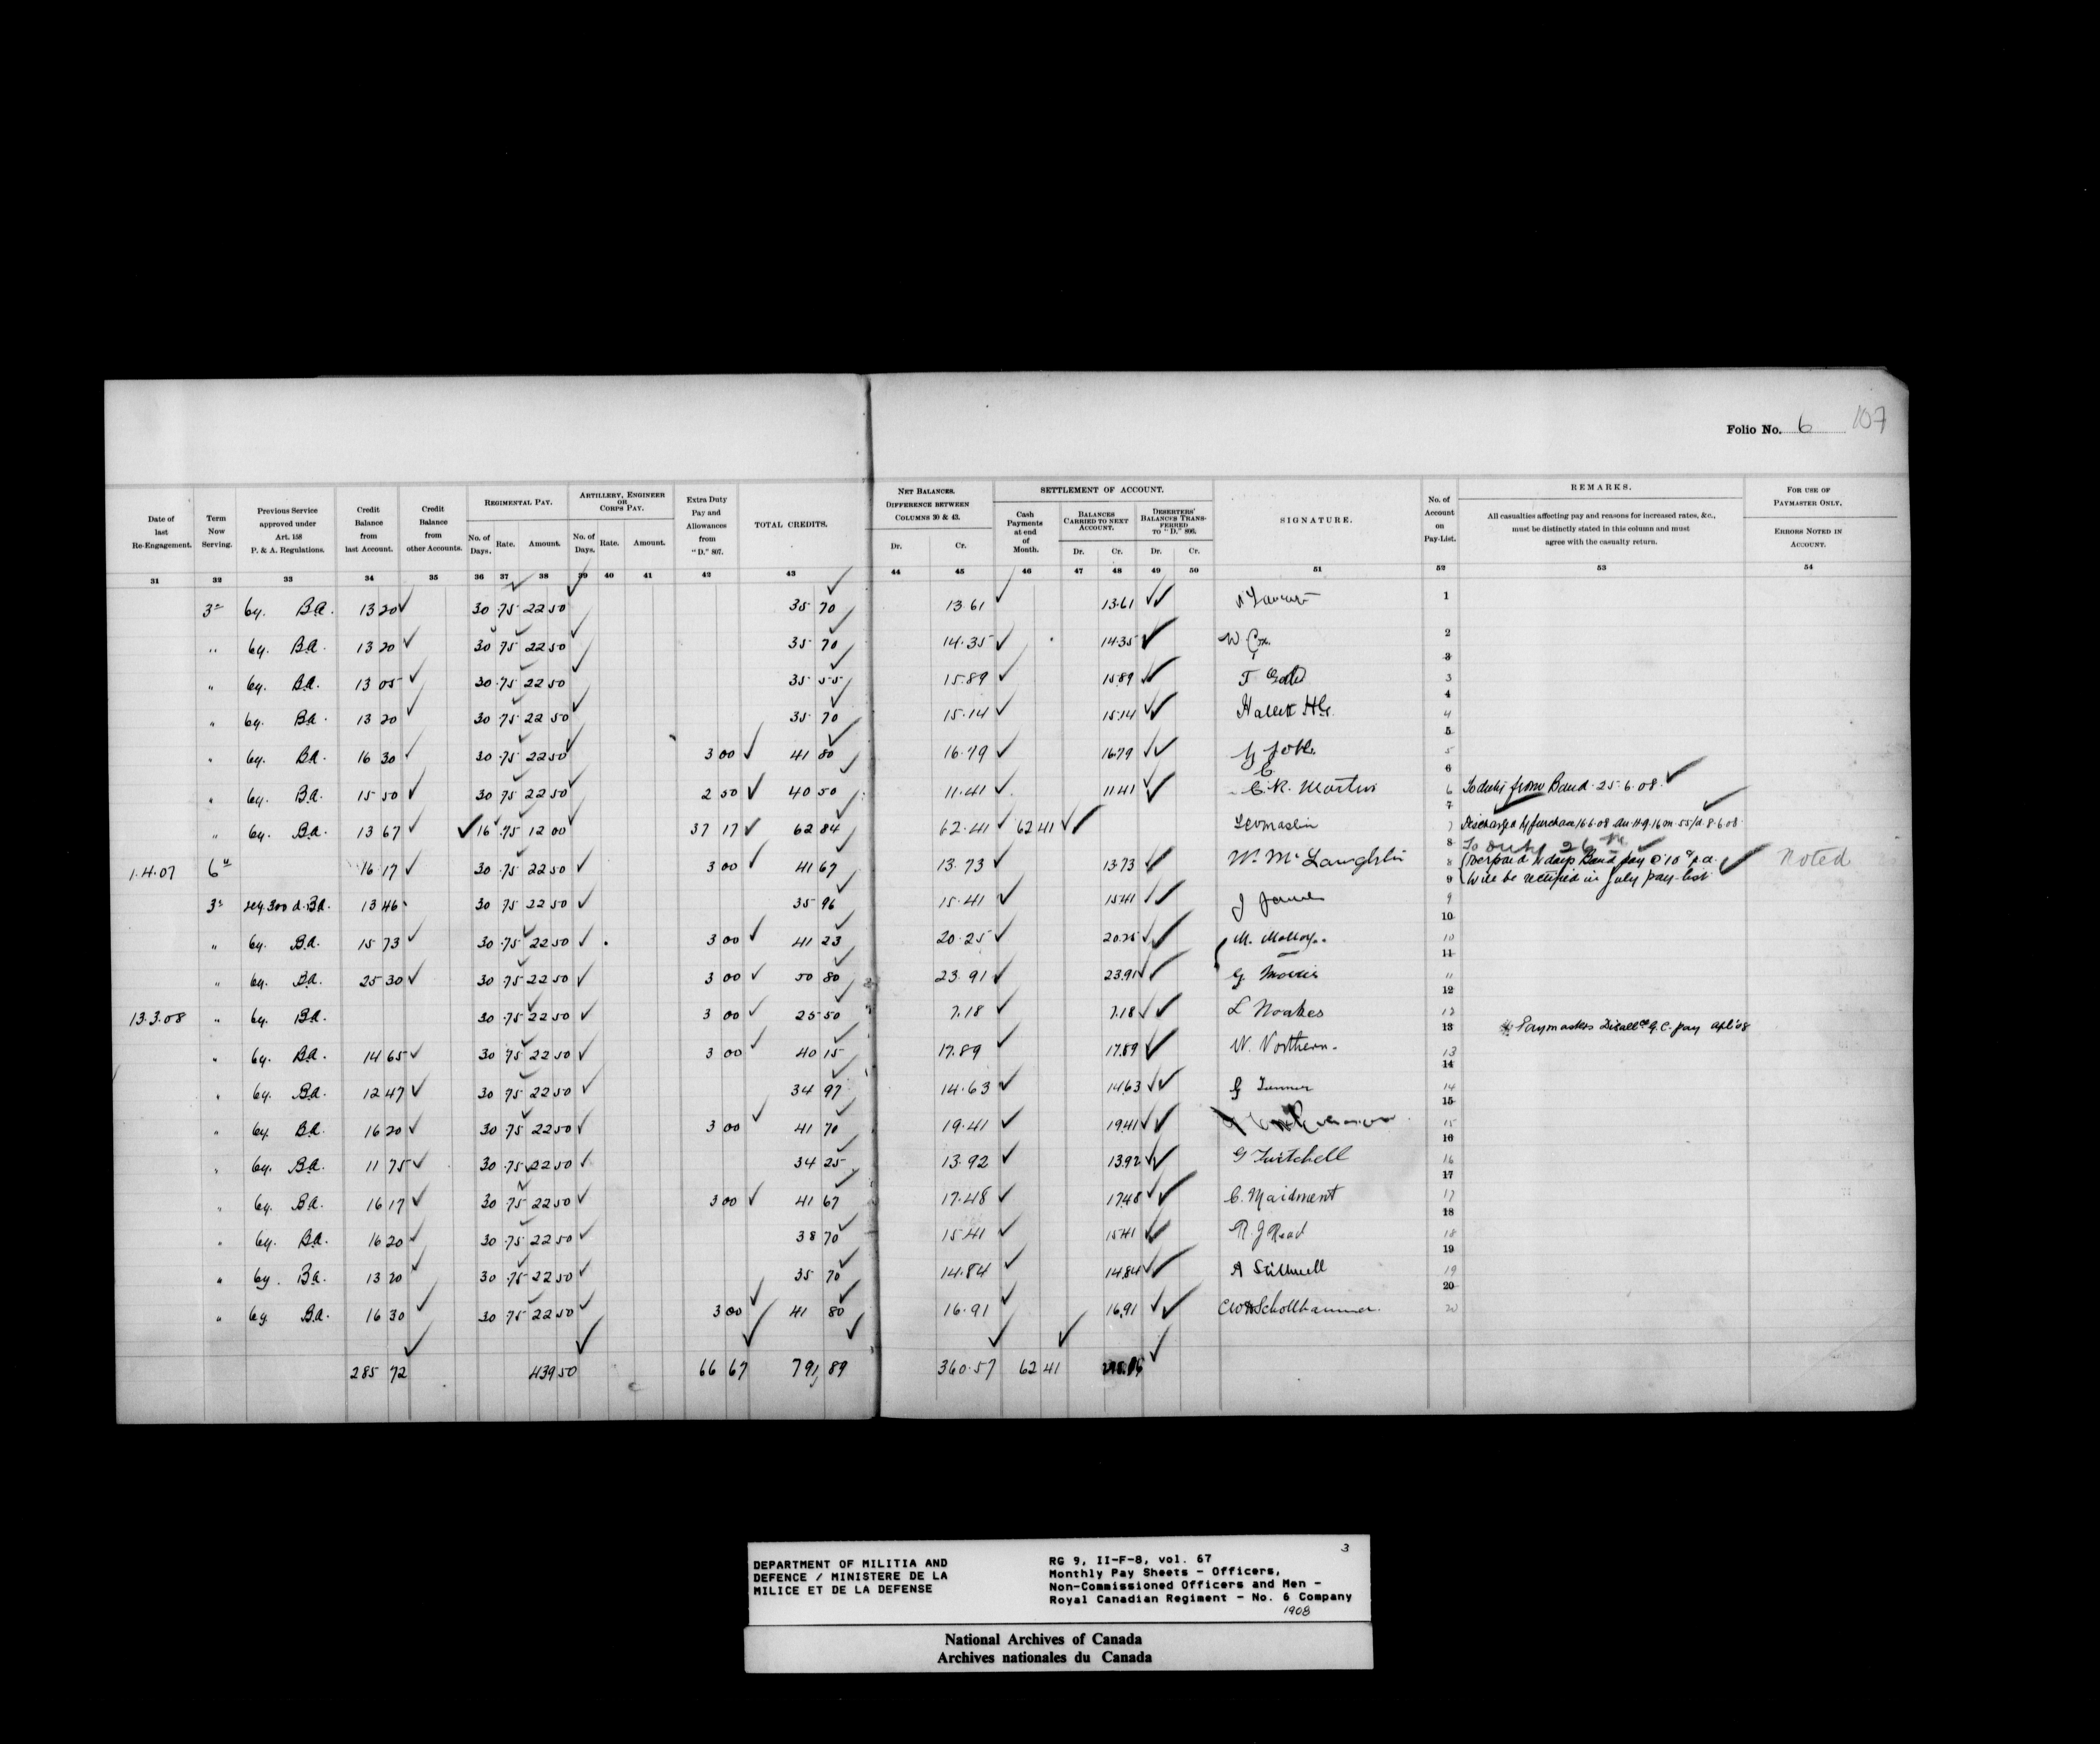 Folio No. 6 107
Date of last Re-Engagement.
Term Now Serving.
Previous Service approved under Art. 158 P. & A. Regulations.
Credit Balance from last Account.
Credit Balance from other Accounts.
REGIMENTAL PAY.
No. of Days. Rate. Amount.
ARTILLERY, ENGINEER OR CORPS PAY.
No. of Days. Rate. Amount.
Extra Duty Pay and Allowances from "D." 807.
TOTAL CREDITS.
NET BALANCES. DIFFERENCE BETWEEN COLUMNS 30 & 43.
Dr. Cr.
SETTLEMENT OF ACCOUNT.
Cash Payments at end of Month.
BALANCES CARRIED TO NEXT ACCOUNT.
Dr. Cr.
DESERTERS' BALANCES TRANSFERRED TO "D." 806.
Dr. Cr.
SIGNATURE.
No. of Account on Pay-List.
REMARKS.
All casualties affecting pay and reasons for increased rates, &c., must be distinctly stated in this column and must agree with the casualty return.
FOR USE OF PAYMASTER ONLY.
ERRORS NOTED IN ACCOUNT.
31 32 33 34 35 36 37 38 39 40 41 42 43 44 45 46 47 48 49 50 51 52 53 54
3 6y. B.a. 13 20 30 .75 22 50 35 70 13 61 13.61 1
" 6y. B.a. 13 20 30 75 22 50 35 70 14.35 14.35 W Cox 2
" 6y. B.a. 13 05 30 .75 22 50 35 55 15.89 15.89 3
" 6y. B.a. 13 20 30 .75 22 50 35 70 15.14 15.14 Hallett 4
" 6y. B.a. 16 30 30 .75 22 50 3 00 41 80 16.79 16.79 5
" 6y. B.a. 15 50 30 75 22 50 2 50 40 50 11.41 11.41 C.R. Martin 6 To duty from Band 25.6.08
" 6y. B.a. 13 67 16 .75 12 00 37 17 62 84 62.41 62 41 7 Discharged by purchase 16.6.08 Au. H.Q. 16 m. 55/d. 8.6.08
1.4.07 6 16 17 30 .75 22 50 3 00 41 67 13.73 13.73 W. McLaughlin 8 Overpaid days Band pay @ 10 p.d. Noted
Will be rectified in July pay-list
3 13 46 30 75 22 50 35 96 15.41 15.41 9
" 6y. B.a. 15 73 30 .75 22 50 3 00 41 23 20.25 20.25 M. Molloy 10
" 6y. B.a. 25 30 30 .75 22 50 3 00 50 80 23.91 23.91 G. Morris 11
13.3.08 " 6y. B.a. 30 .75 22 50 3 00 25 50 7.18 7.18 L Noakes 12
Paymasters Disall G.C. pay Apl '08
" 6y. B.a. 14 65 30 75 22 50 3 00 40 15 17.89 17.89 W. Northern 13
" 6y. B.a. 12 47 30 75 22 50 34 97 14.63 14.63 14
" 6y. B.a. 16 20 30 75 22 50 3 00 41 70 19.41 19.41 15
" 6y. B.a. 11 75 30 .75 22 50 34 25 13.92 13.92 G Twitchell 16
" 6y. B.a. 16 17 30 75 22 50 3 00 41 67 17.48 17.48 C. Maidment 17
" 6y. B.a. 16 20 30 .75 22 50 38 70 15.41 15.41 R. J Read 18
" 6y. B.a. 13 20 30 .75 22 50 35 70 14.84 14.84 A Stillwell 19
" 6y. B.a. 16 30 30 75 22 50 3 00 41 80 16.91 16.91 Schollhammer 20
285 72 439 50 66 67 791 89 360.57 62 41
DEPARTMENT OF MILITIA AND
DEFENCE / MINISTERE DE LA
MILICE ET DE LA DEFENSE
3
RG 9, II-F-8, vol. 67
Monthly Pay Sheets - Officers,
Non-Commissioned Officers and Men -
Royal Canadian Regiment - No. 6 Company
1908
National Archives of Canada
Archives nationales du Canada